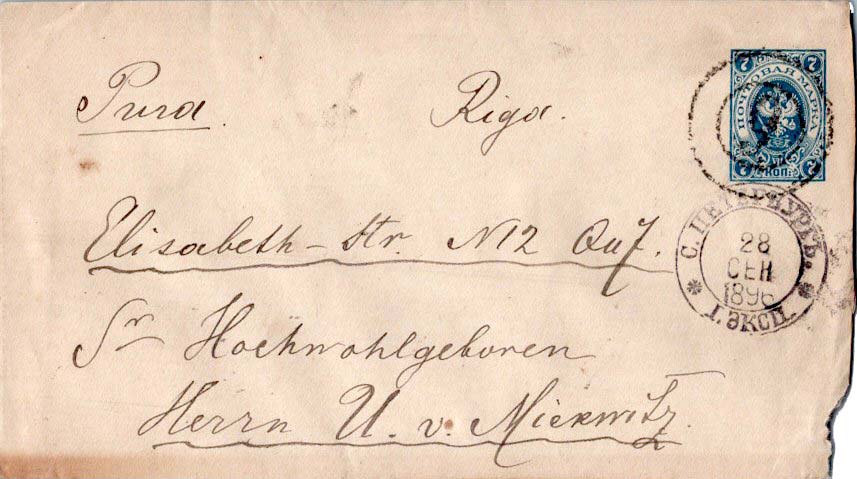 Рига. Riga.
Elisabeth-Str. N12 Qu 7.
Sr Hochwohlgeboren
Herrn U. v. Mickwitz.
7 7
ПОЧТОВАЯ МАРКА
7 КОП. 7
С. ПЕТЕРБУРГЪ.
28
СЕН
1896
1. ЭКСП.